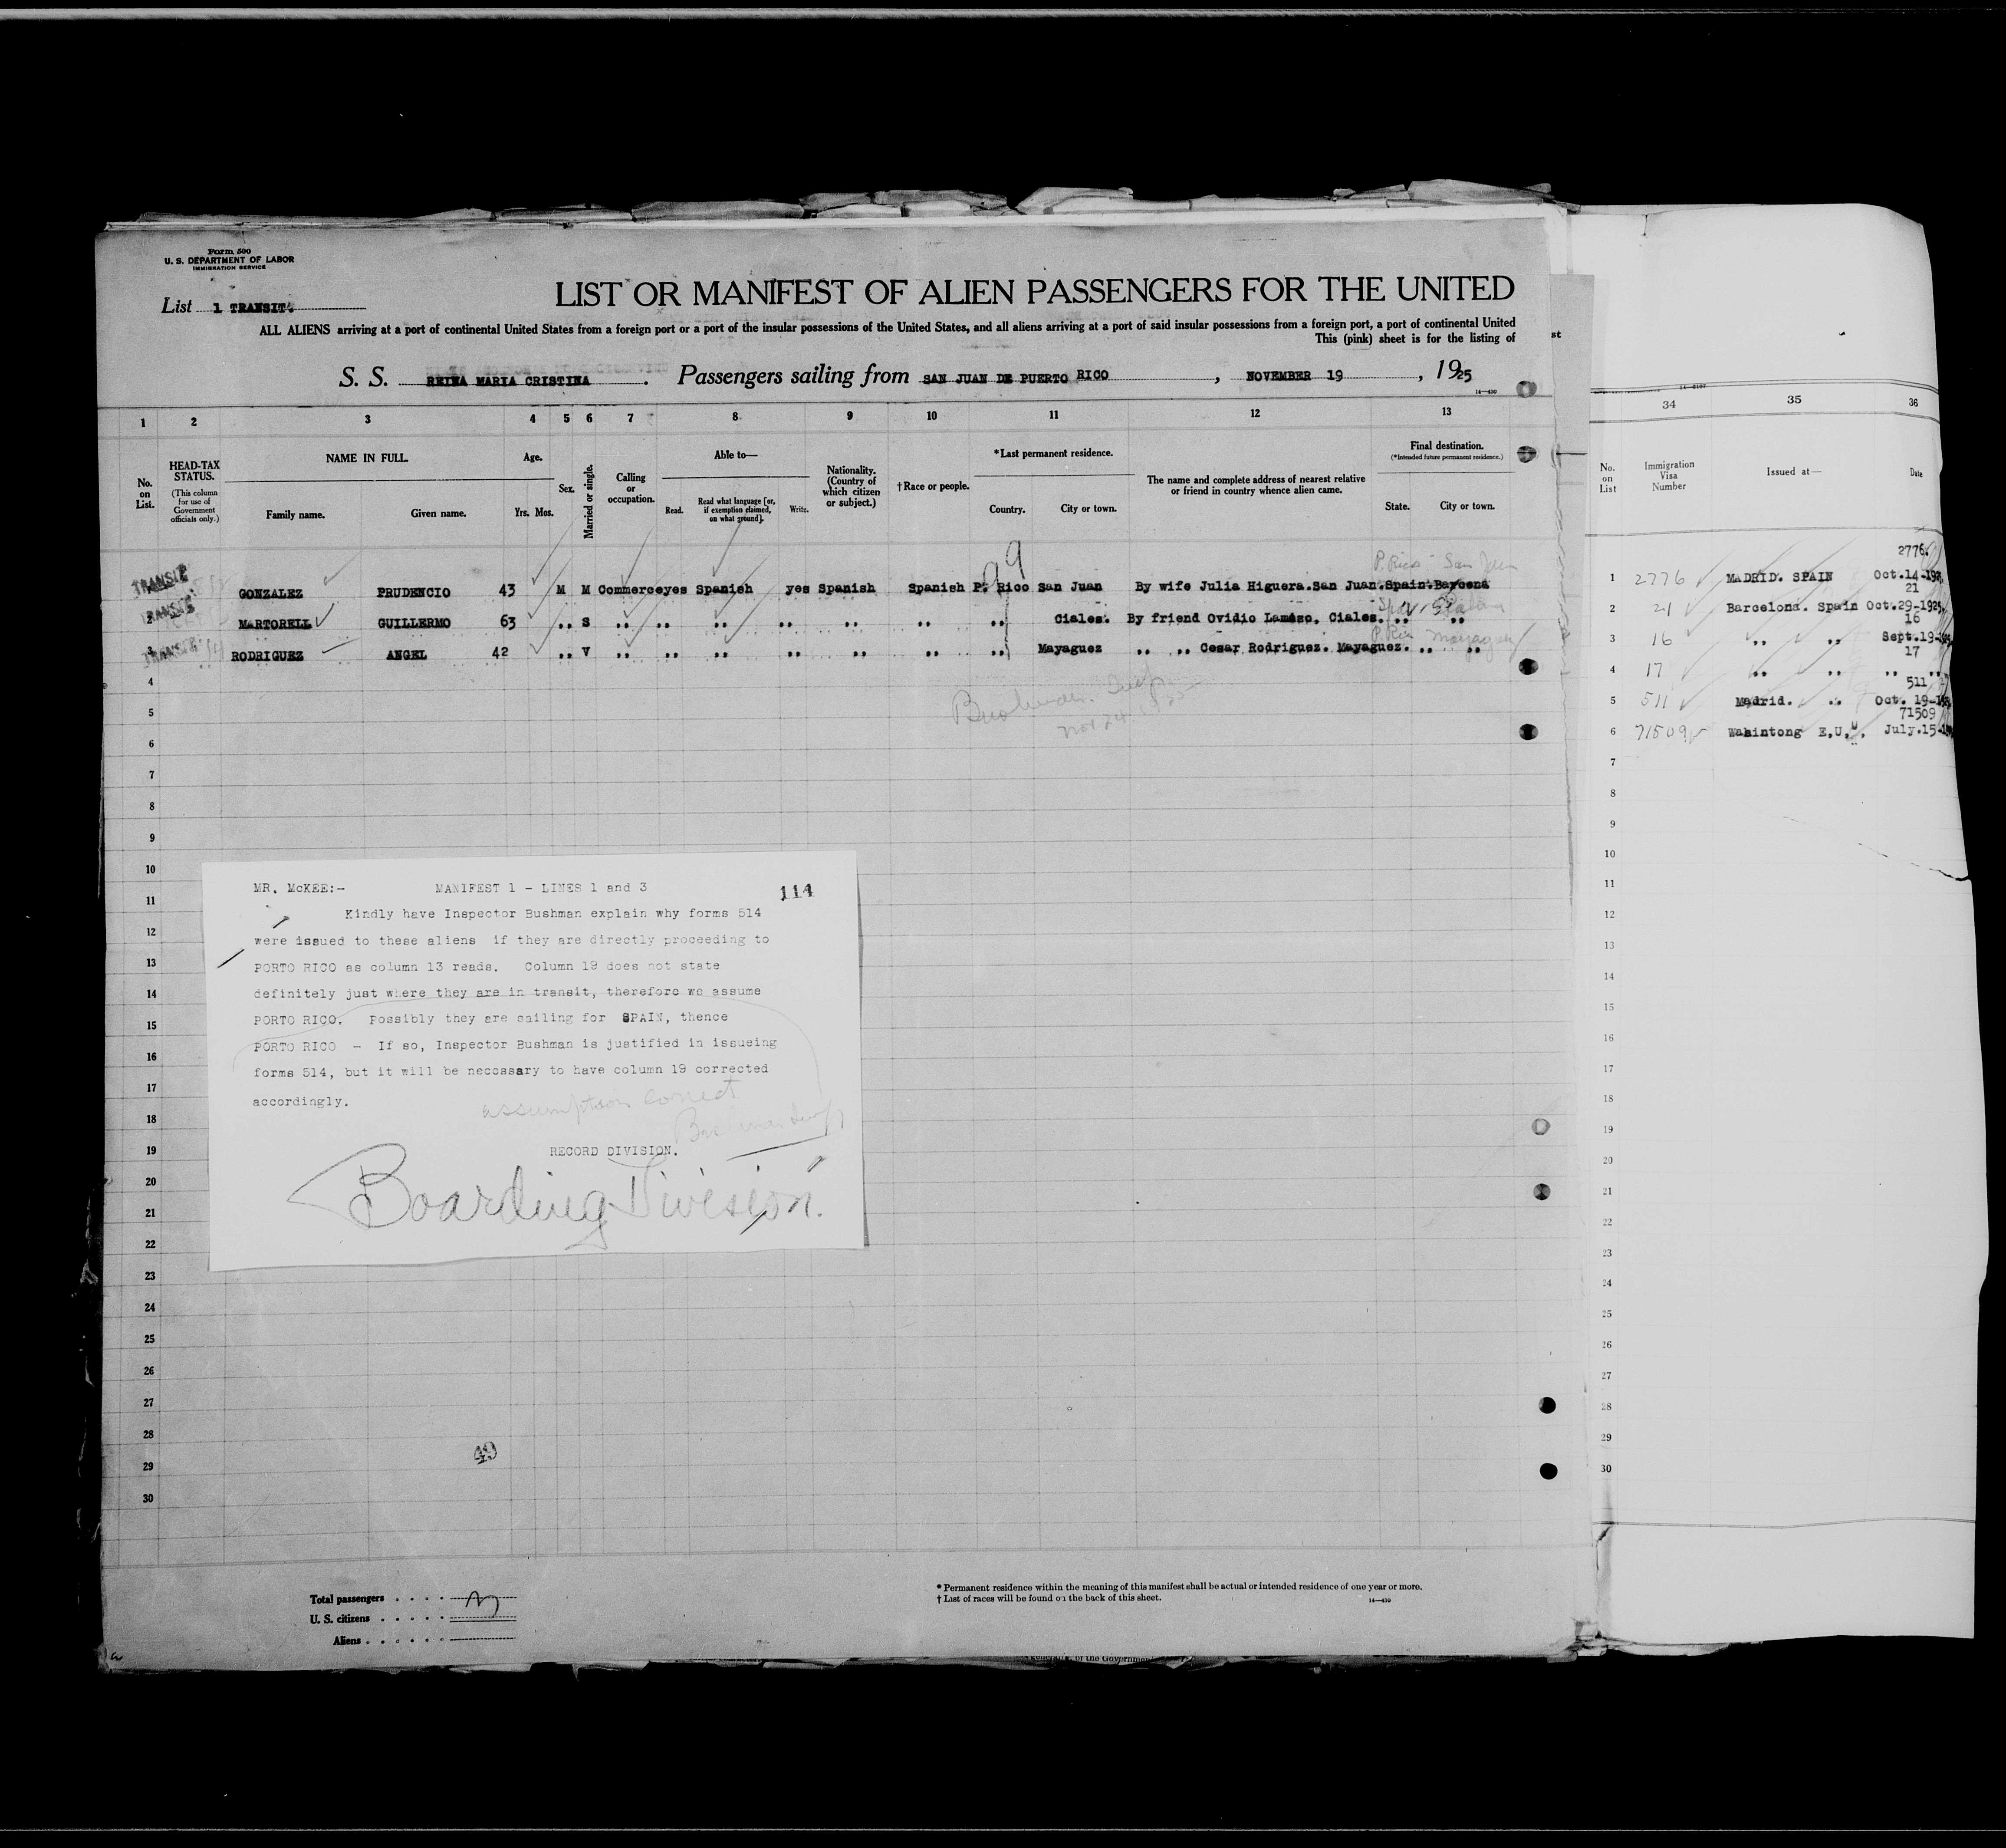 Form 500
U. S. DEPARTMENT OF LABOR
IMMIGRATION SERVICE
List 1 TRANSIT.
LIST OR MANIFEST OF ALIEN PASSENGERS FOR THE UNITED
ALL ALIENS arriving at a port of continental United States from a foreign port or a port of the insular possessions of the United States, and all aliens arriving at a port of said insular possessions from a foreign port, a port of continental United
This (pink) sheet is for the listing of
st
S. S. REINA MARIA CRISTINA . Passengers sailing from SAN JUAN DE PUERTO RICO , NOVEMBER 19 , 1925
14—430
1 2 3 4 5 6 7 8 9 10 11 12 13
No. on List.
HEAD-TAX STATUS.
(This column for use of Government officials only.)
NAME IN FULL.
Family name. Given name.
Age.
Yrs. Mos.
Sex.
Married or single.
Calling or occupation.
Able to—
Read. Read what language [or, if exemption claimed, on what ground]. Write.
Nationality. (Country of which citizen or subject.)
†Race or people.
*Last permanent residence.
Country. City or town.
The name and complete address of nearest relative or friend in country whence alien came.
Final destination.
(*Intended future permanent residence.)
State. City or town.
99
P. Rico San Juan
TRANSIT GONZALEZ PRUDENCIO 43 M M Commerce yes Spanish yes Spanish Spanish P. Rico San Juan By wife Julia Higuera. San Juan. Spain. Barcena
TRANSIT MARTORELL GUILLERMO 63 ,, S ,, ,, ,, ,, ,, ,, ,, Ciales. By friend Ovidio Lamaso. Ciales. ,, ,,
P. Rico Mayaguez
3 TRANSIT RODRIGUEZ ANGEL 42 ,, V ,, ,, ,, ,, ,, ,, ,, Mayaguez ,, ,, Cesar Rodriguez. Mayaguez. ,, ,,
Bushman. Insp
Nov 24 1925
4
5
6
7
8
9
10
11
12
13
14
15
16
17
18
19
20
21
22
23
24
25
26
27
28
29
30
MR. McKEE:- MANIFEST 1 - LINES 1 and 3 114
Kindly have Inspector Bushman explain why forms 514
were issued to these aliens if they are directly proceeding to
PORTO RICO as column 13 reads. Column 19 does not state
definitely just where they are in transit, therefore we assume
PORTO RICO. Possibly they are sailing for SPAIN, thence
PORTO RICO - If so, Inspector Bushman is justified in issueing
forms 514, but it will be necessary to have column 19 corrected
accordingly.
assumption correct
Bushman Insp
RECORD DIVISION.
Boarding Division.
49
Total passengers
U. S. citizens
Aliens
* Permanent residence within the meaning of this manifest shall be actual or intended residence of one year or more.
† List of races will be found on the back of this sheet.
14—430
of the Government
34 35 36
No. on List
Immigration Visa Number
Issued at—
Date
2776
1 2776 MADRID. SPAIN Oct.14-192
21
2 21 Barcelona. Spain Oct.29-1925
16
3 16 ,, ,, Sept.19-
17
4 17 ,, ,, ,, ,,
511
5 511 Madrid. ,, Oct. 19-
71509
6 71509 Wahintong E,U, July.15-
7
8
9
10
11
12
13
14
15
16
17
18
19
20
21
22
23
24
25
26
27
28
29
30